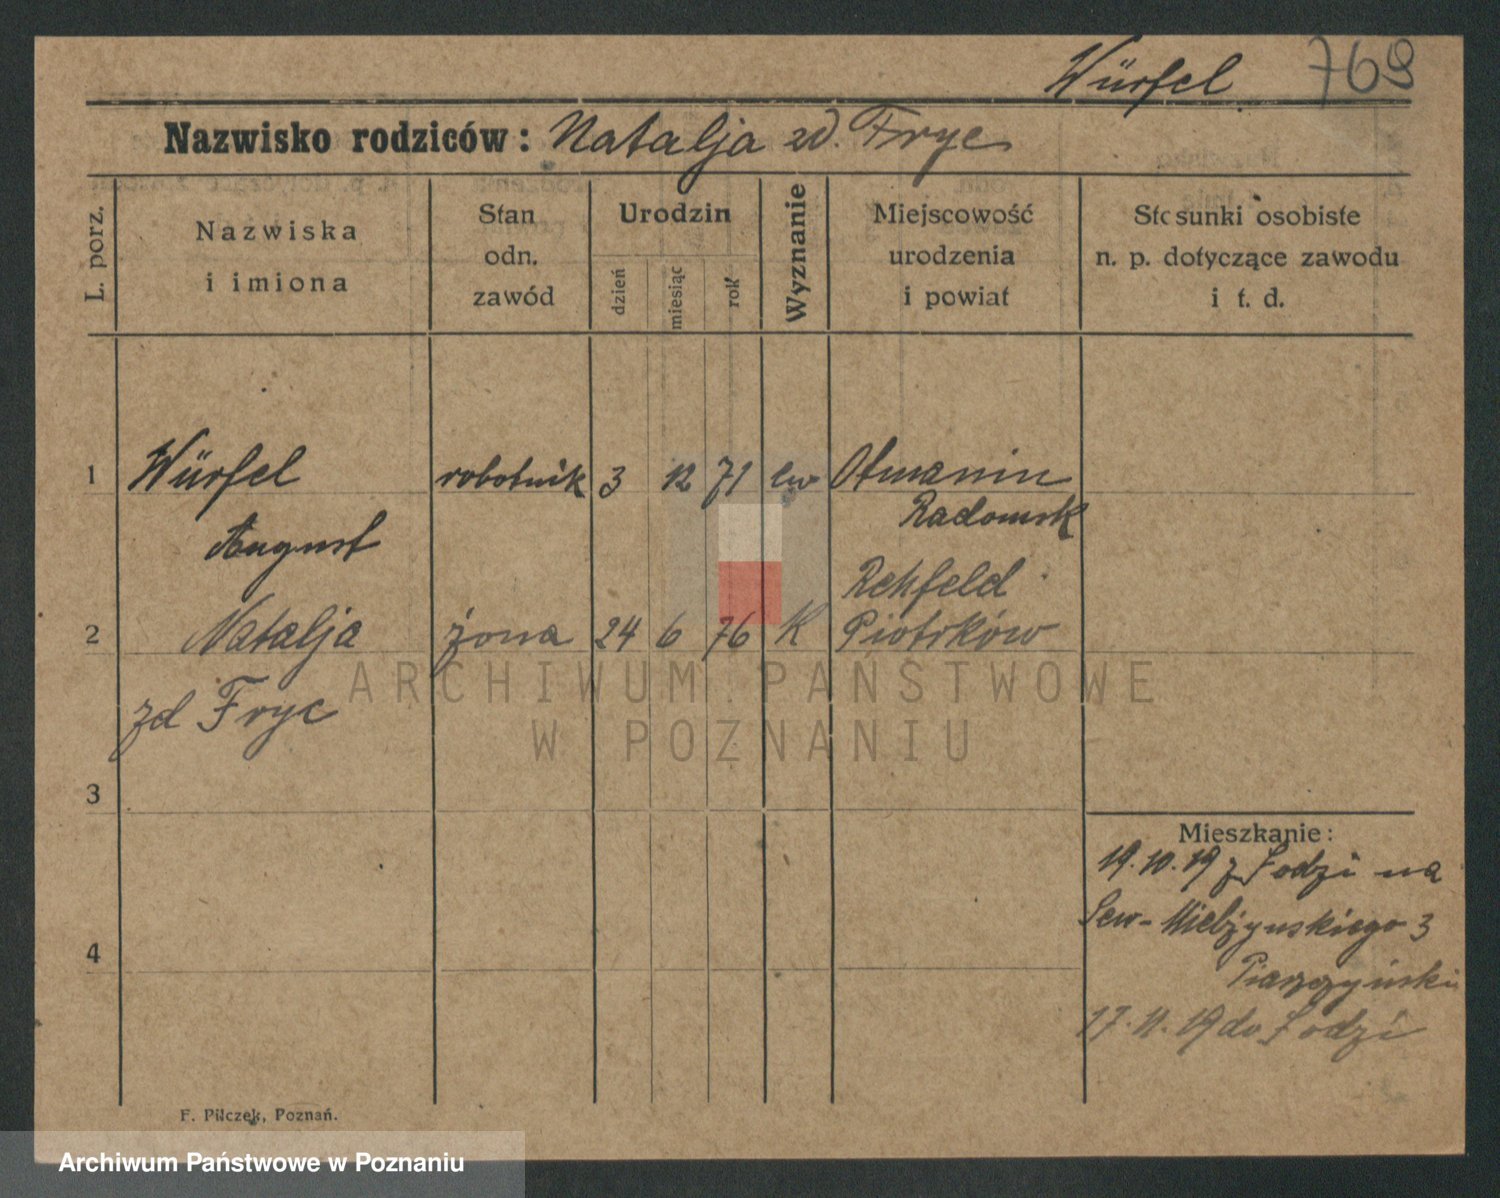 Würfel 769
Nazwisko rodziców: Natalja zd. Fryc
L. porz.
Nazwiska
i imiona
Stan
odn.
zawód
Urodzin
dzień
miesiąc
rok
Wyznanie
Miejscowość
urodzenia
i powiat
Stosunki osobiste
n. p. dotyczące zawodu
i t. d.
1 Würfel robotnik 3 12 71 ew Otmanin
August Radomsk
Rehfeld
2 Natalja żona 24 6 76 K Piotrków
zd Fryc
ARCHIWUM PAŃSTWOWE
W POZNANIU
3
Mieszkanie:
19.10.19 z Łodzi na
Sew-Mielżyńskiego 3
4
17.11.19 do Łodzi
F. Pilczek, Poznań.
Archiwum Państwowe w Poznaniu